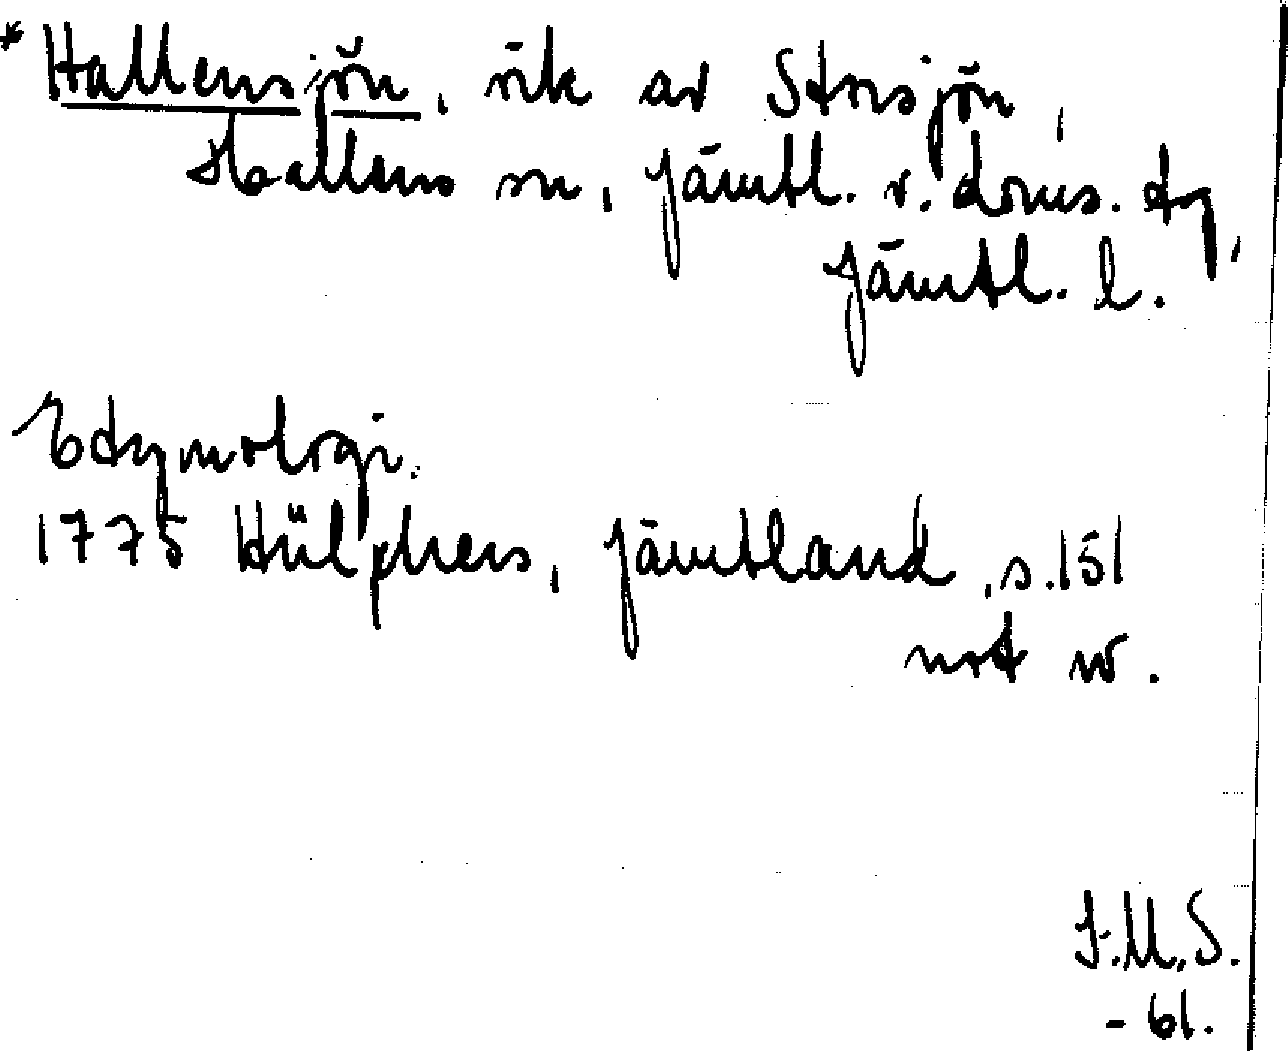 * Hallensjön, vik av Storsjön,
Hallens sn, Jämtl. v. doms. tg,
Jämtl. l.
Etymologi.
1775 Hülphers, Jämtland, s. 151
not w.
J.M.S.
- 61.